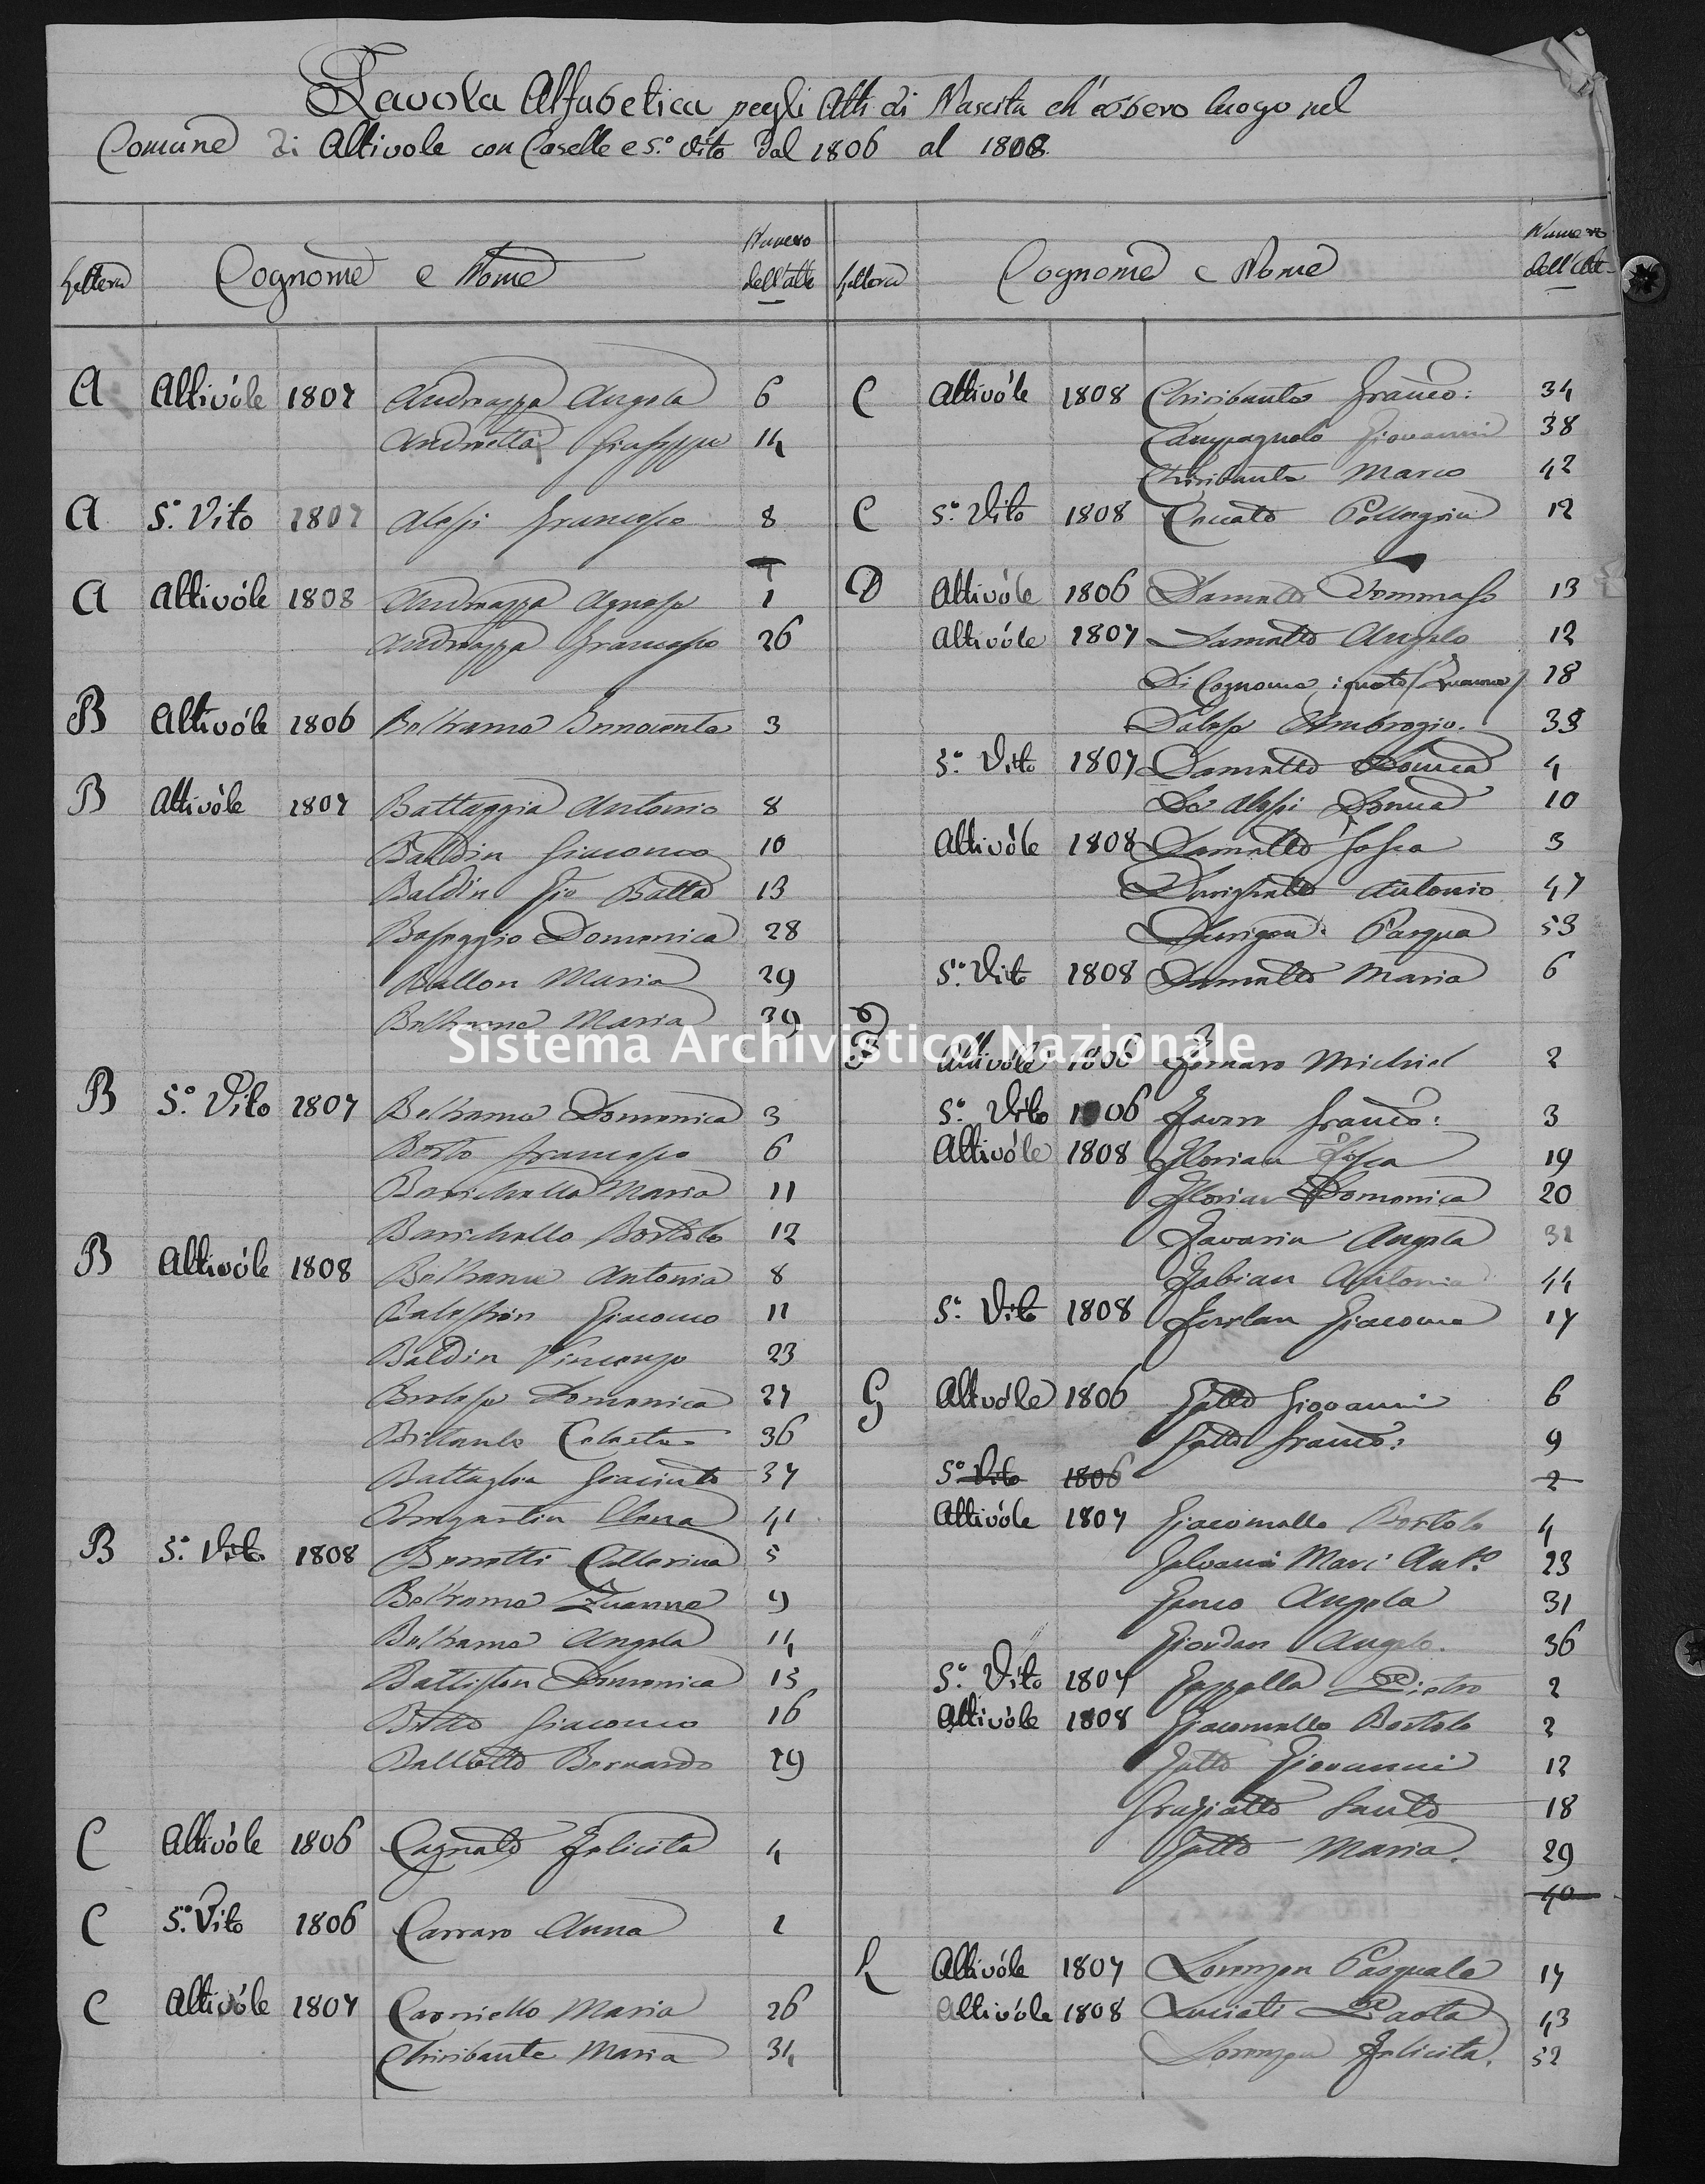 Tavola Alfabetica pegli Atti di Nascita ch'ebbero luogo nel
Comune di Altivole con Caselle e S.º Vito dal 1806 al 1808.
Lettera Cognome e Nome Numero dell'atto
A Altivóle 1807 Andreazza Angela 6
Andretta Giuseppe 14
A S.º Vito 1807 Alessi Francesco 8
A Altivóle 1808 Andreazza Agnese 1
Andreazza Francesco 26
B Altivóle 1806 Beltrame Innocente 3
B Altivóle 1807 Battaggia Antonio 8
Baldin Giacomo 10
Baldin Gio Batta 13
Baseggio Domenica 28
Ballon Maria 29
Beltrame Maria 39
B S.º Vito 1807 Beltrame Domenica 3
Francesco 6
Barichella Maria 11
Barichello Bortolo 12
B Altivóle 1808 Beltrame Antonia 8
Balestrin Giacomo 11
Baldin Vincenzo 23
Domenica 27
36
Battaglia Giacinto 37
Elena 41
B S.º Vito 1808 Catterina 5
Beltrame Zuanne 9
Beltrame Angela 14
Battiston Domenica 15
Giacomo 16
Ballotto Bernardo 29
C Altivóle 1806 Cagnato Felicita 4
C S.º Vito 1806 Carraro Anna 1
C Altivóle 1807 Carniello Maria 26
Chiribante Maria 34
Lettera Cognome e Nome Numero dell'Atto
C Altivóle 1808 Chiribante Franco: 34
Campagnolo Giovanni 38
Chiribante Marco 42
C S.º Vito 1808 Ceccato Pellegrin 12
D Altivóle 1806 Dametto Tommaso 13
Altivóle 1807 Dametto Angelo 12
Di Cognome ignoto (Zuanna) 18
Ambrogio. 38
S.º Vito 1807 Dametto 4
De Alessi 10
Altivóle 1808 Dametto Fosca 3
Antonio 47
Durigon Pasqua 53
S.º Vito 1808 Dametto Maria 6
F Altivóle 1806 Fornaro Michiel 2
S.º Vito 1806 Favero Franco: 3
Altivóle 1808 Florian Fosca 19
Florian Domenica 20
Favarin Angela 31
Fabian Antonio 44
S.º Vito 1808 Furlan Giacomo 17
G Altivóle 1806 Gatto Giovanni 6
Gatto Franco: 9
S.º Vito 1806 2
Altivóle 1807 Giacomello Bortolo 4
Galvani Marc' Ant.º 23
Angela 31
Giordan Angelo. 36
S.º Vito 1807 Gazzella Pietro 2
Altivóle 1808 Giacomello Bortolo 2
Gatto Giovanni 12
Graziotto Santo 18
Gatto Maria. 29
40
L Altivóle 1807 Lorenzon Pasquale 17
Altivóle 1808 Luciati Paola 43
Lorenzon Felicita. 52
Sistema Archivistico Nazionale